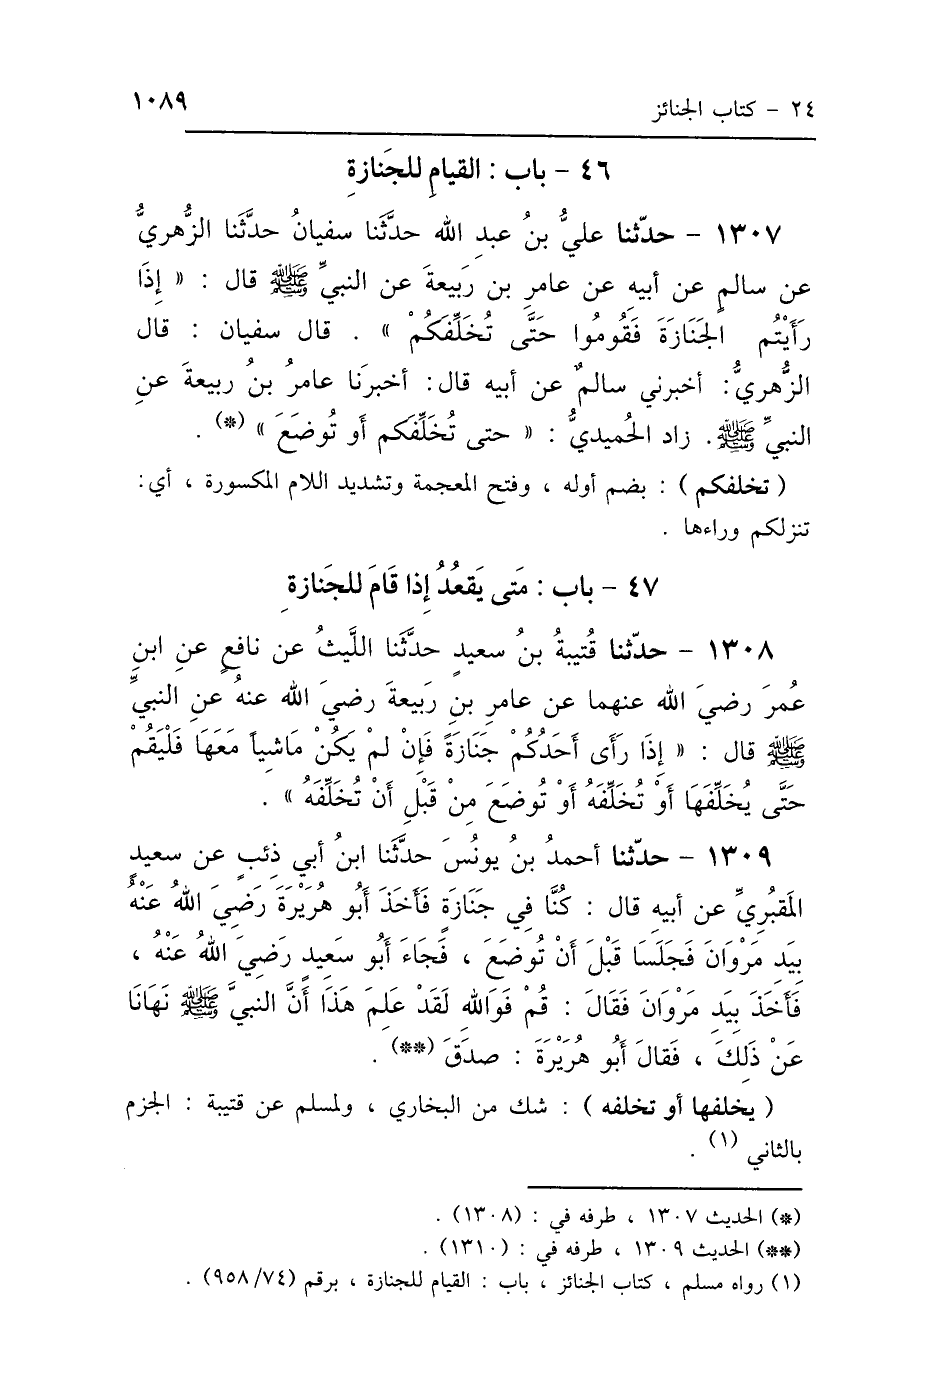 ٢٤ - كتاب الجنائز ١٠٨٩
٤٦ - باب : القيامِ للجَنازةِ
١٣٠٧ - حدّثنا عليُّ بنُ عبدِ الله حدَّثَنا سفيانُ حدَّثَنا الزُّهريُّ
عن سالمٍ عن أبيه عن عامرِ بن رَبيعةَ عن النبيِّ ﷺ قال : « إِذَا
رَأَيْتُم الجَنَازَةَ فَقُومُوا حَتَّى تُخَلِّفَكُمْ » . قال سفيان : قال
الزُّهريُّ: أخبرني سالمٌ عن أبيه قال: أخبرَنا عامرُ بنُ ربيعةَ عنِ
النبيِّ ﷺ. زاد الحُميديُّ : « حتى تُخَلِّفَكم أو تُوضَعَ » (*) .
( تخلفكم ) : بضم أوله ، وفتح المعجمة وتشديد اللام المكسورة ، أي:
تنزلكم وراءها .
٤٧ - باب : مَتى يَقعُدُ إِذا قَامَ للجَنازةِ
١٣٠٨ - حدّثنا قُتيبةُ بنُ سعيدٍ حدَّثَنا اللَّيثُ عن نافعٍ عنِ ابنِ
عُمرَ رضيَ الله عنهما عن عامرِ بنِ رَبيعةَ رضيَ الله عنهُ عنِ النبيِّ
ﷺ قال : « إِذَا رَأَى أَحَدُكُمْ جَنَازَةً فَإِنْ لمْ يَكُنْ مَاشِياً مَعَهَا فَلْيَقُمْ
حَتَّى يُخَلِّفَهَا أَوْ تُخَلِّفَهُ أَوْ تُوضَعَ مِنْ قَبْلِ أَنْ تُخَلِّفَهُ » .
١٣٠٩ - حدّثنا أحمدُ بنُ يونُسَ حدَّثَنا ابنُ أبي ذئبٍ عن سعيدٍ
المَقبُريِّ عن أبيه قال : كُنَّا فِي جَنَازَةٍ فَأَخَذَ أَبُو هُرَيْرَةَ رَضِيَ اللهُ عَنْهُ
بِيَدِ مَرْوَانَ فَجَلَسَا قَبْلَ أَنْ تُوضَعَ ، فَجَاءَ أَبُو سَعِيدٍ رَضِيَ اللهُ عَنْهُ ،
فَأَخَذَ بِيَدِ مَرْوَانَ فَقَالَ : قُمْ فَوَاللهِ لَقَدْ عَلِمَ هَذَا أَنَّ النبيَّ ﷺ نَهَانَا
عَنْ ذَلِكَ ، فَقالَ أَبُو هُرَيْرَةَ : صدَقَ (**) .
( يخلفها أو تخلفه ) : شك من البخاري ، ولمسلم عن قتيبة : الجزم
بالثاني (١) .
(*) الحديث ١٣٠٧ ، طرفه في : (١٣٠٨) .
(**) الحديث ١٣٠٩ ، طرفه في : (١٣١٠) .
(١) رواه مسلم ، كتاب الجنائز ، باب : القيام للجنازة ، برقم (٩٥٨/٧٤) .